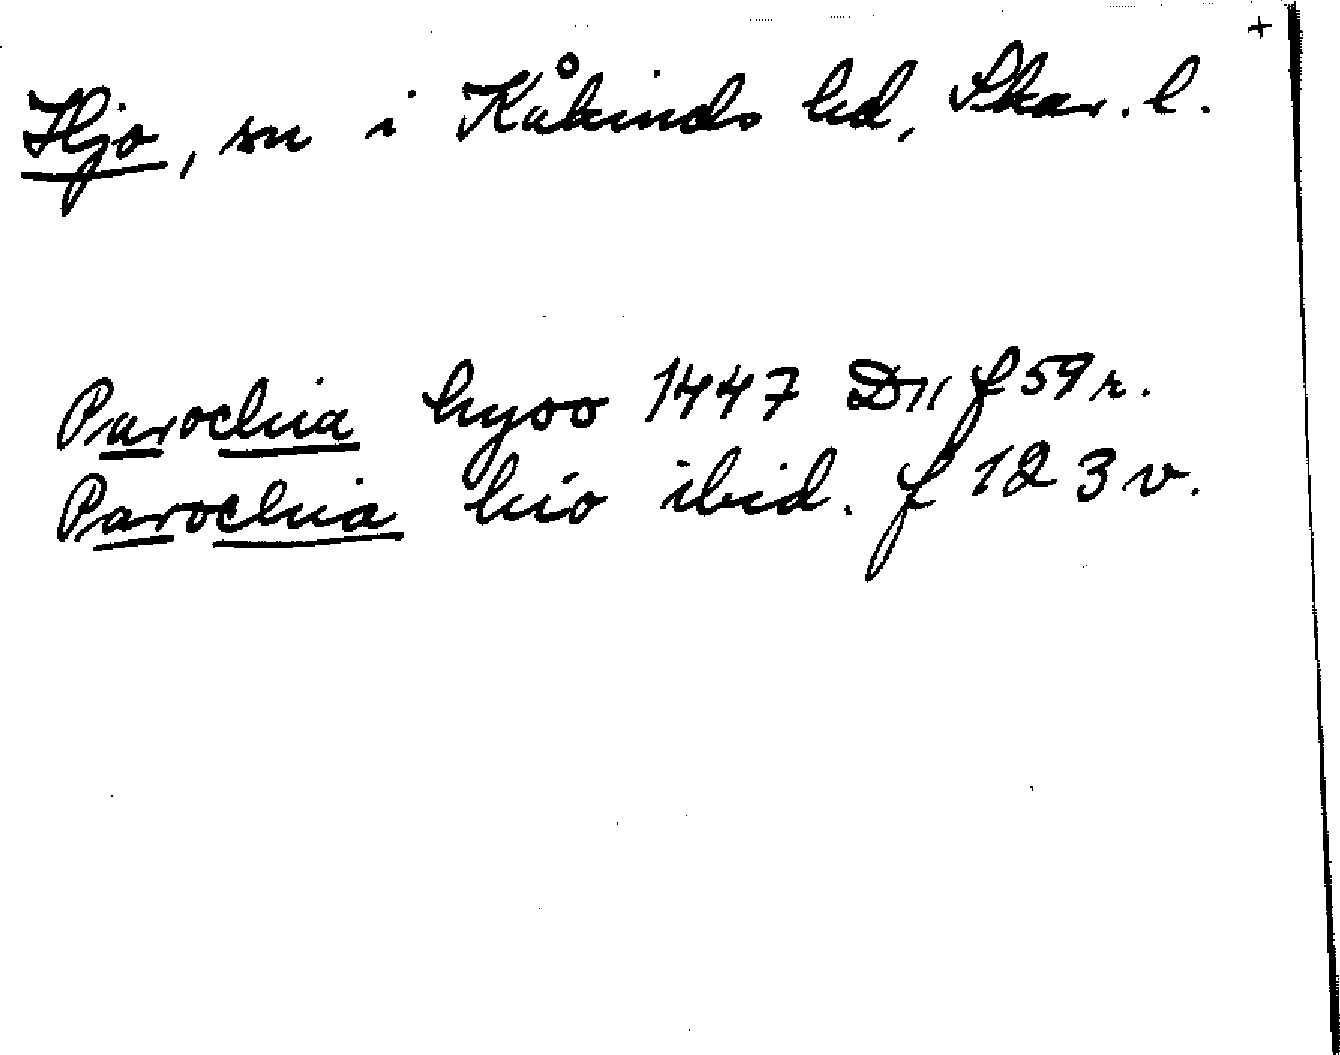 +
Hjo, sn i Kåkinds hd, Skar. l.
Parochia hyoo 1447 D11 f 59 r.
Parochia hio ibid. f 123 v.